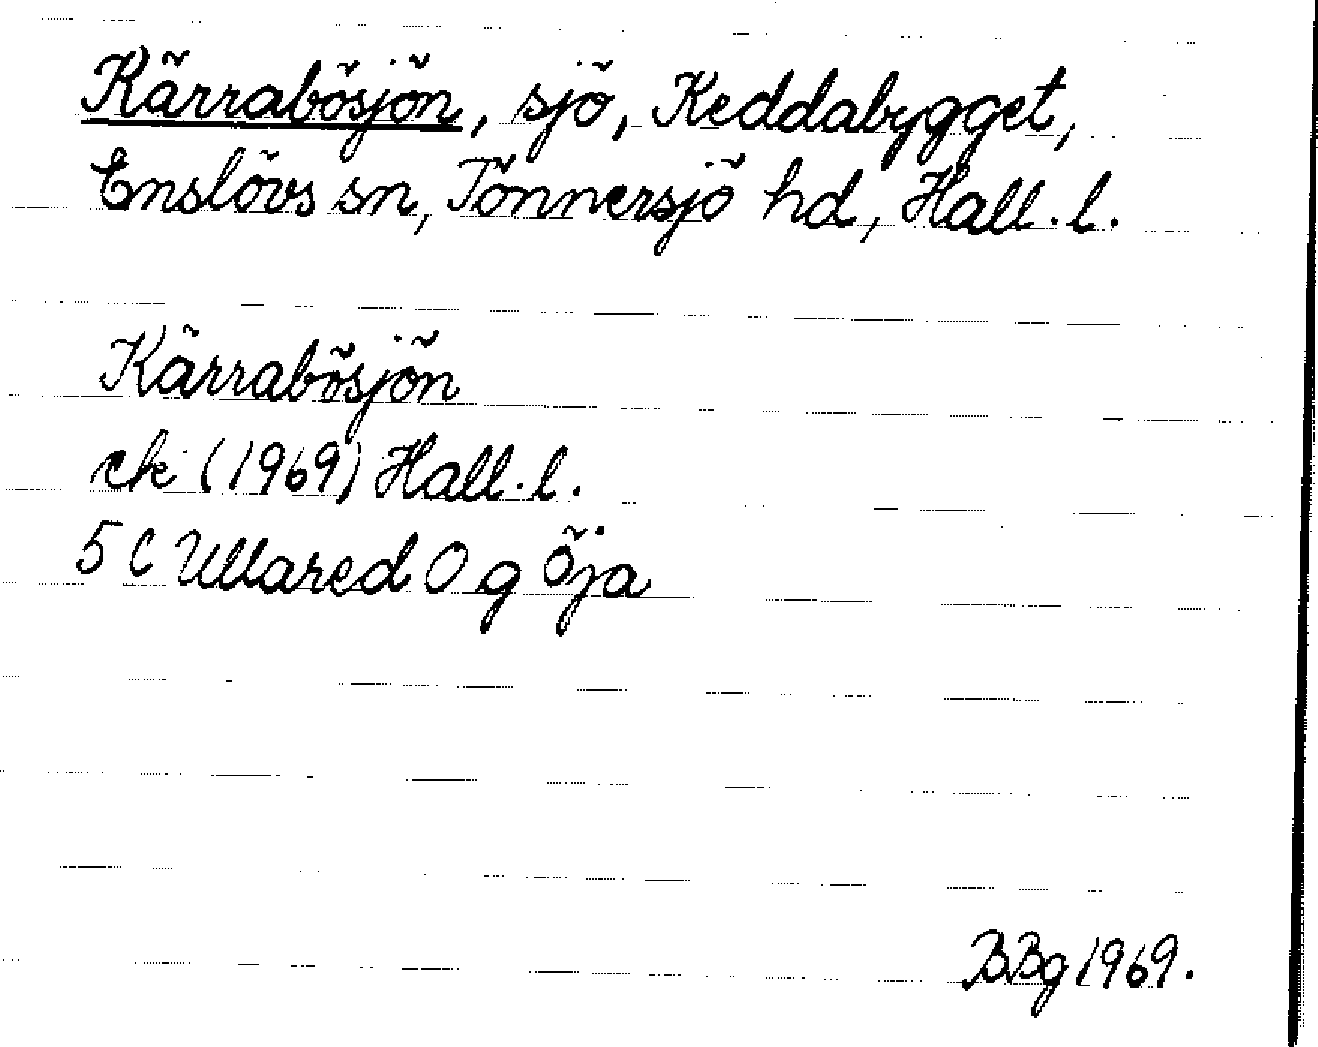 Kärrabösjön, sjö, Keddabygget,
Enslövs sn, Tönnersjö hd, Hall. l.
Kärrabösjön
ek (1969) Hall. l.
5 C Ullared O g öja
BBg 1969.